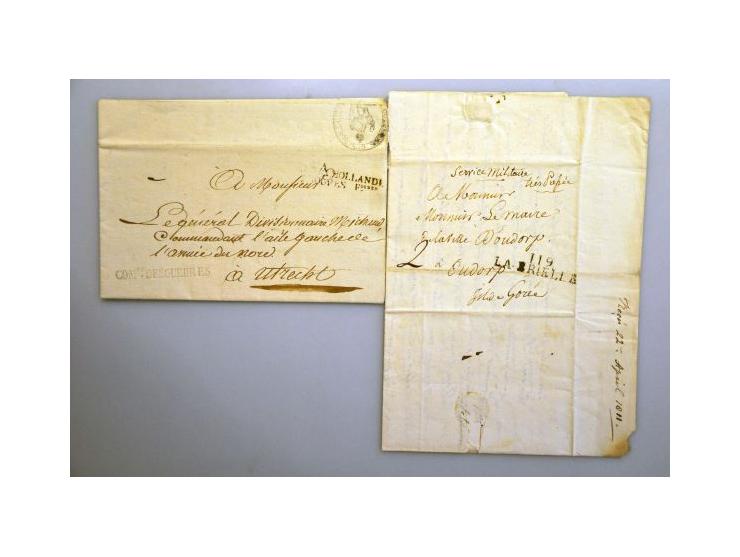 A HOLLANDE
A Monsieur
Le général Divisionnaire Michaud
Commandant l'aile gauche de
l'armée du nord
à Utrecht
COMre DES GUERRES
Service Militaire
très Pressée
A Monsieur
Monsieur Le maire
de la Ville D'oudorp
2 à oudorp
119
LA BRIELLE
isle de Gorée
22 April 1811.